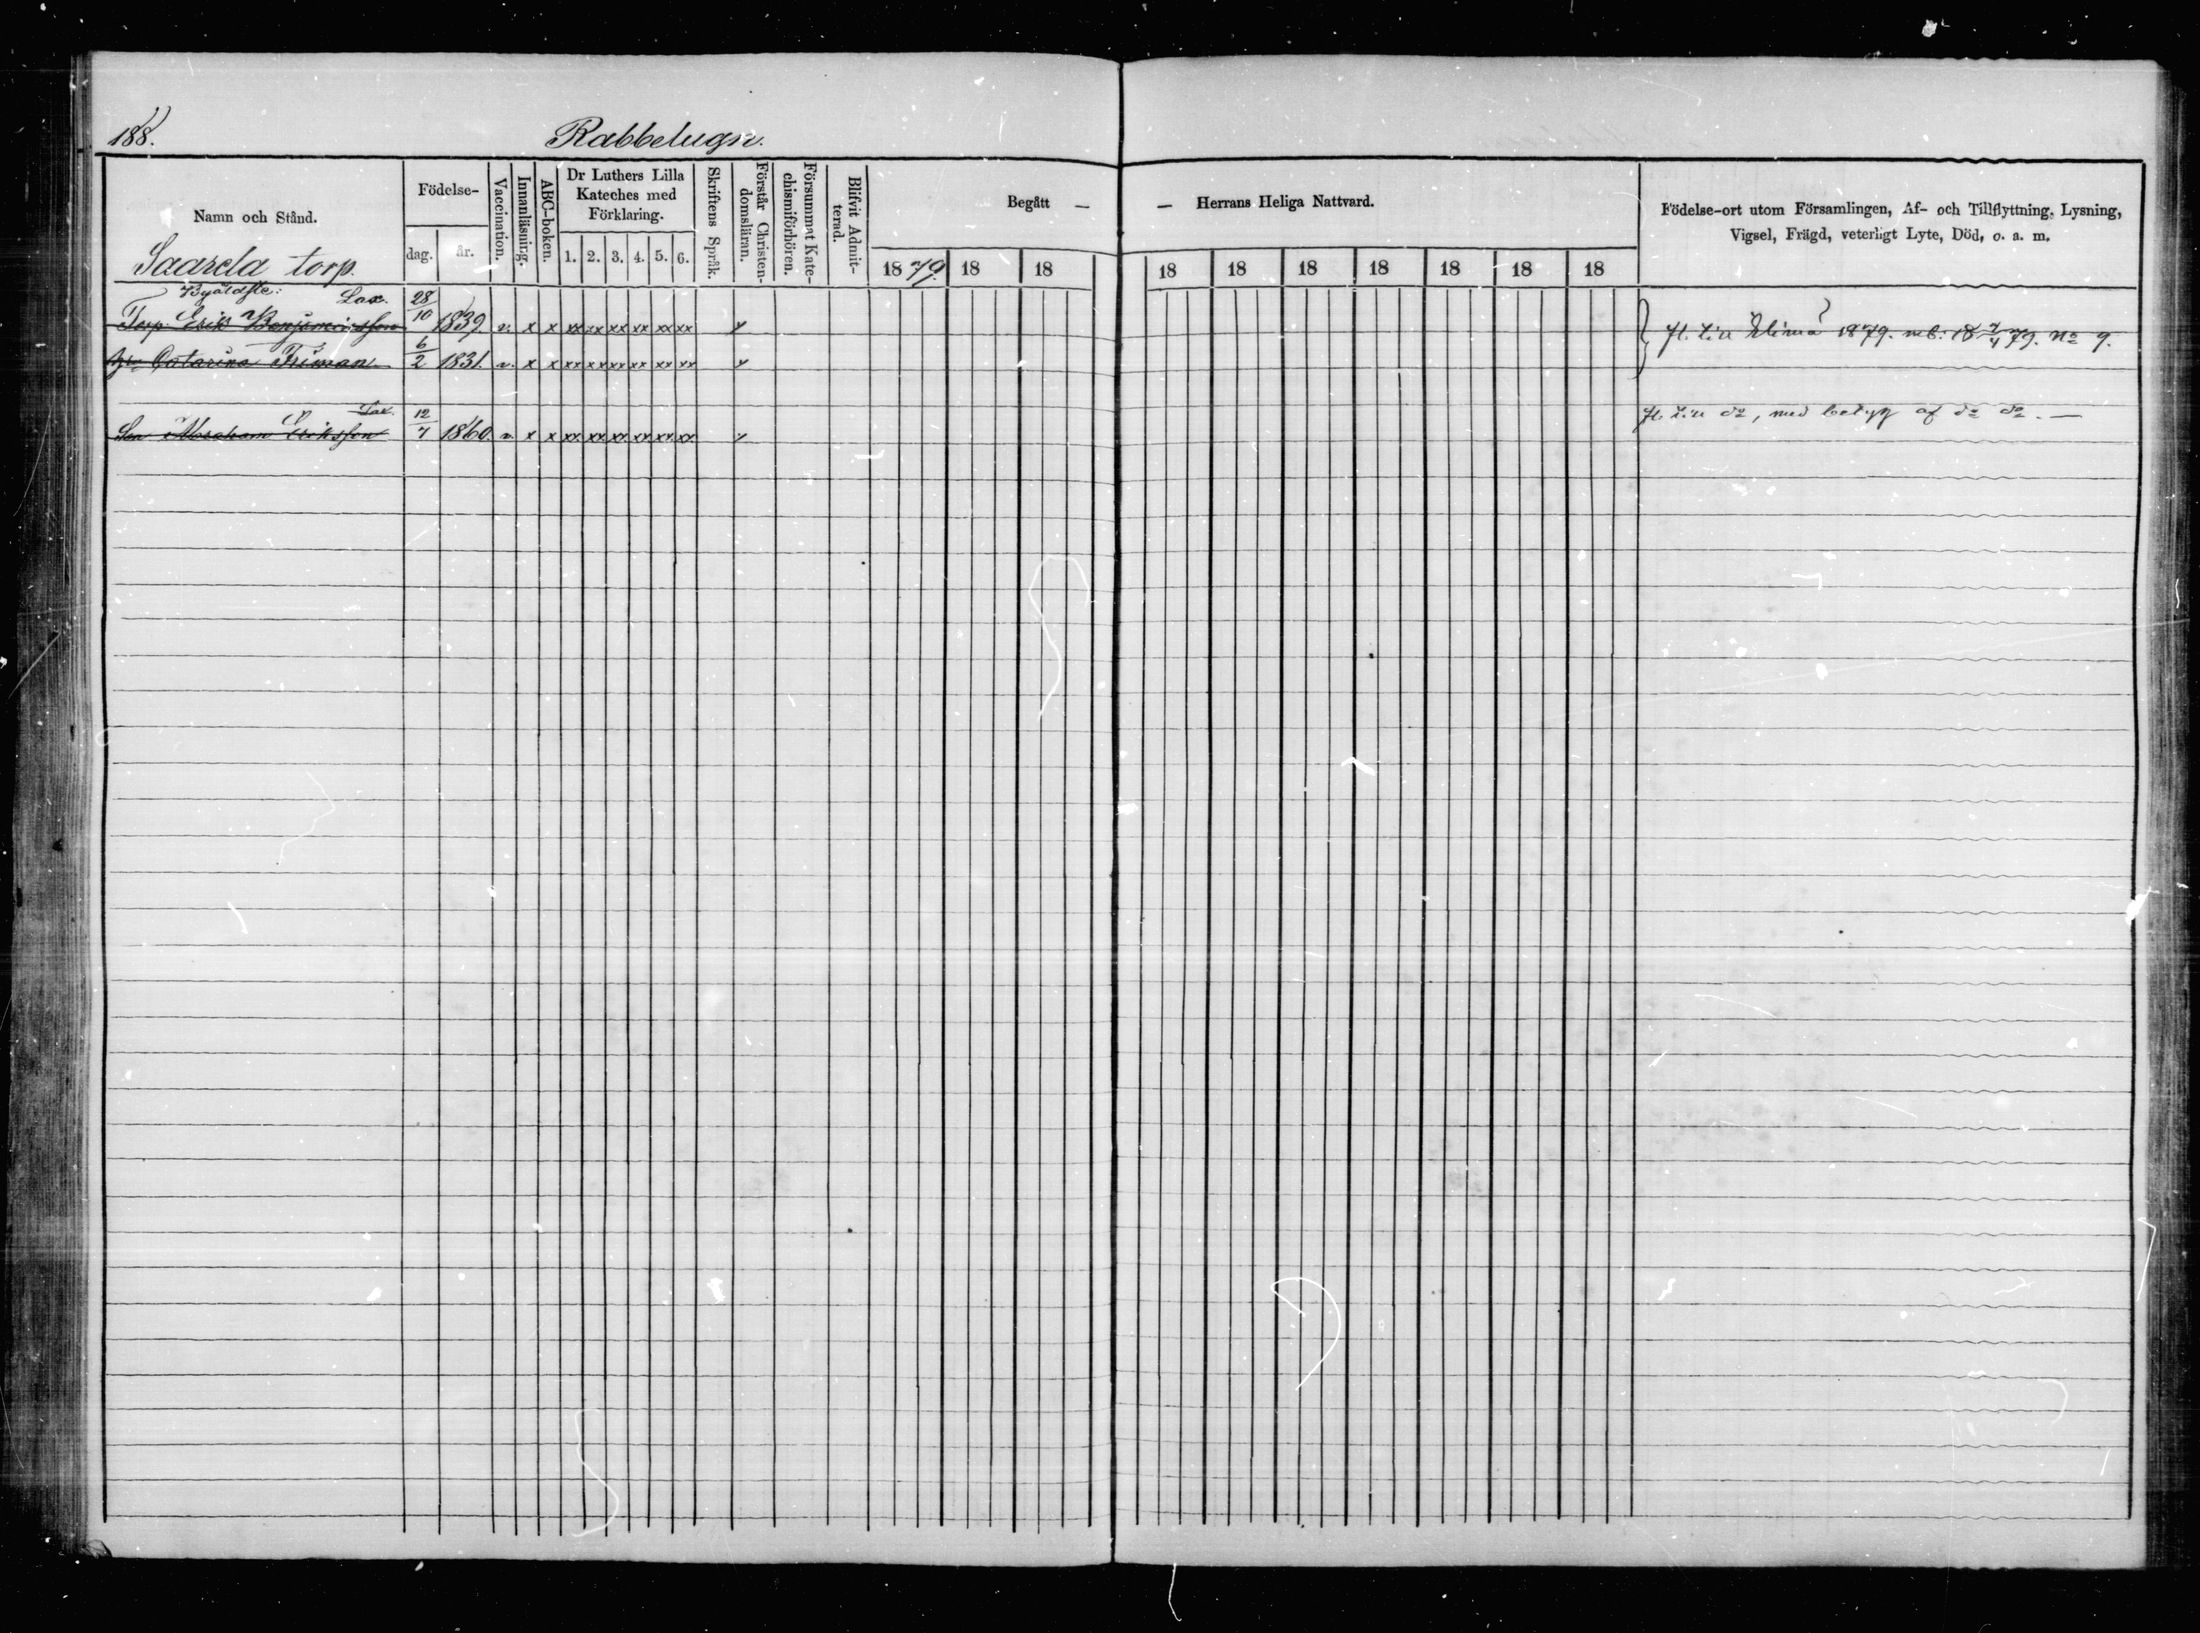 188.
Rabbelugn.
Namn och Stånd.
Födelse-
dag. år.
Vaccination.
Innanläsning.
ABC-boken.
Dr Luthers Lilla
Kateches med
Förklaring.
1. 2. 3. 4. 5. 6.
Skriftens Språk.
Förstår Christen-
domsläran.
Försummat Kate-
chismiförhören.
Blifvit Admit-
terad.
Begått —
— Herrans Heliga Nattvard.
1879. 18 18 18 18 18 18 18 18 18
Födelse-ort utom Församlingen, Af- och Tillflyttning, Lysning,
Vigsel, Frägd, veterligt Lyte, Död, o. a. m.
Saarela torp.
Byäldste: Lax.
Torp Erik Benjaminsson 28/10 1839. v. x x xx xx xx xx xx xx x fl. till Elimä 1879. mb: 18 7/4 79. No 9.
Catarina Friman 6/2 1831. v. x x xx xx xx xx xx xx x
Lax.
Son Abraham Eriksson 12/7 1860. v. x x xx xx xx xx xx xx x fl. till do, med betyg af do do. —